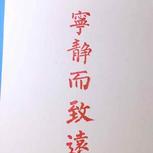 寧静而致遠